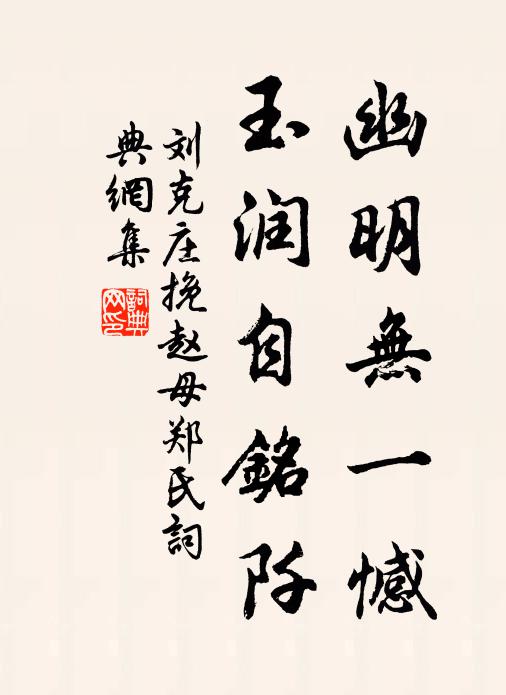 幽明無一憾
玉润自銘阡
刘克庄挽赵母郑氏詞
典網集
詞典网印